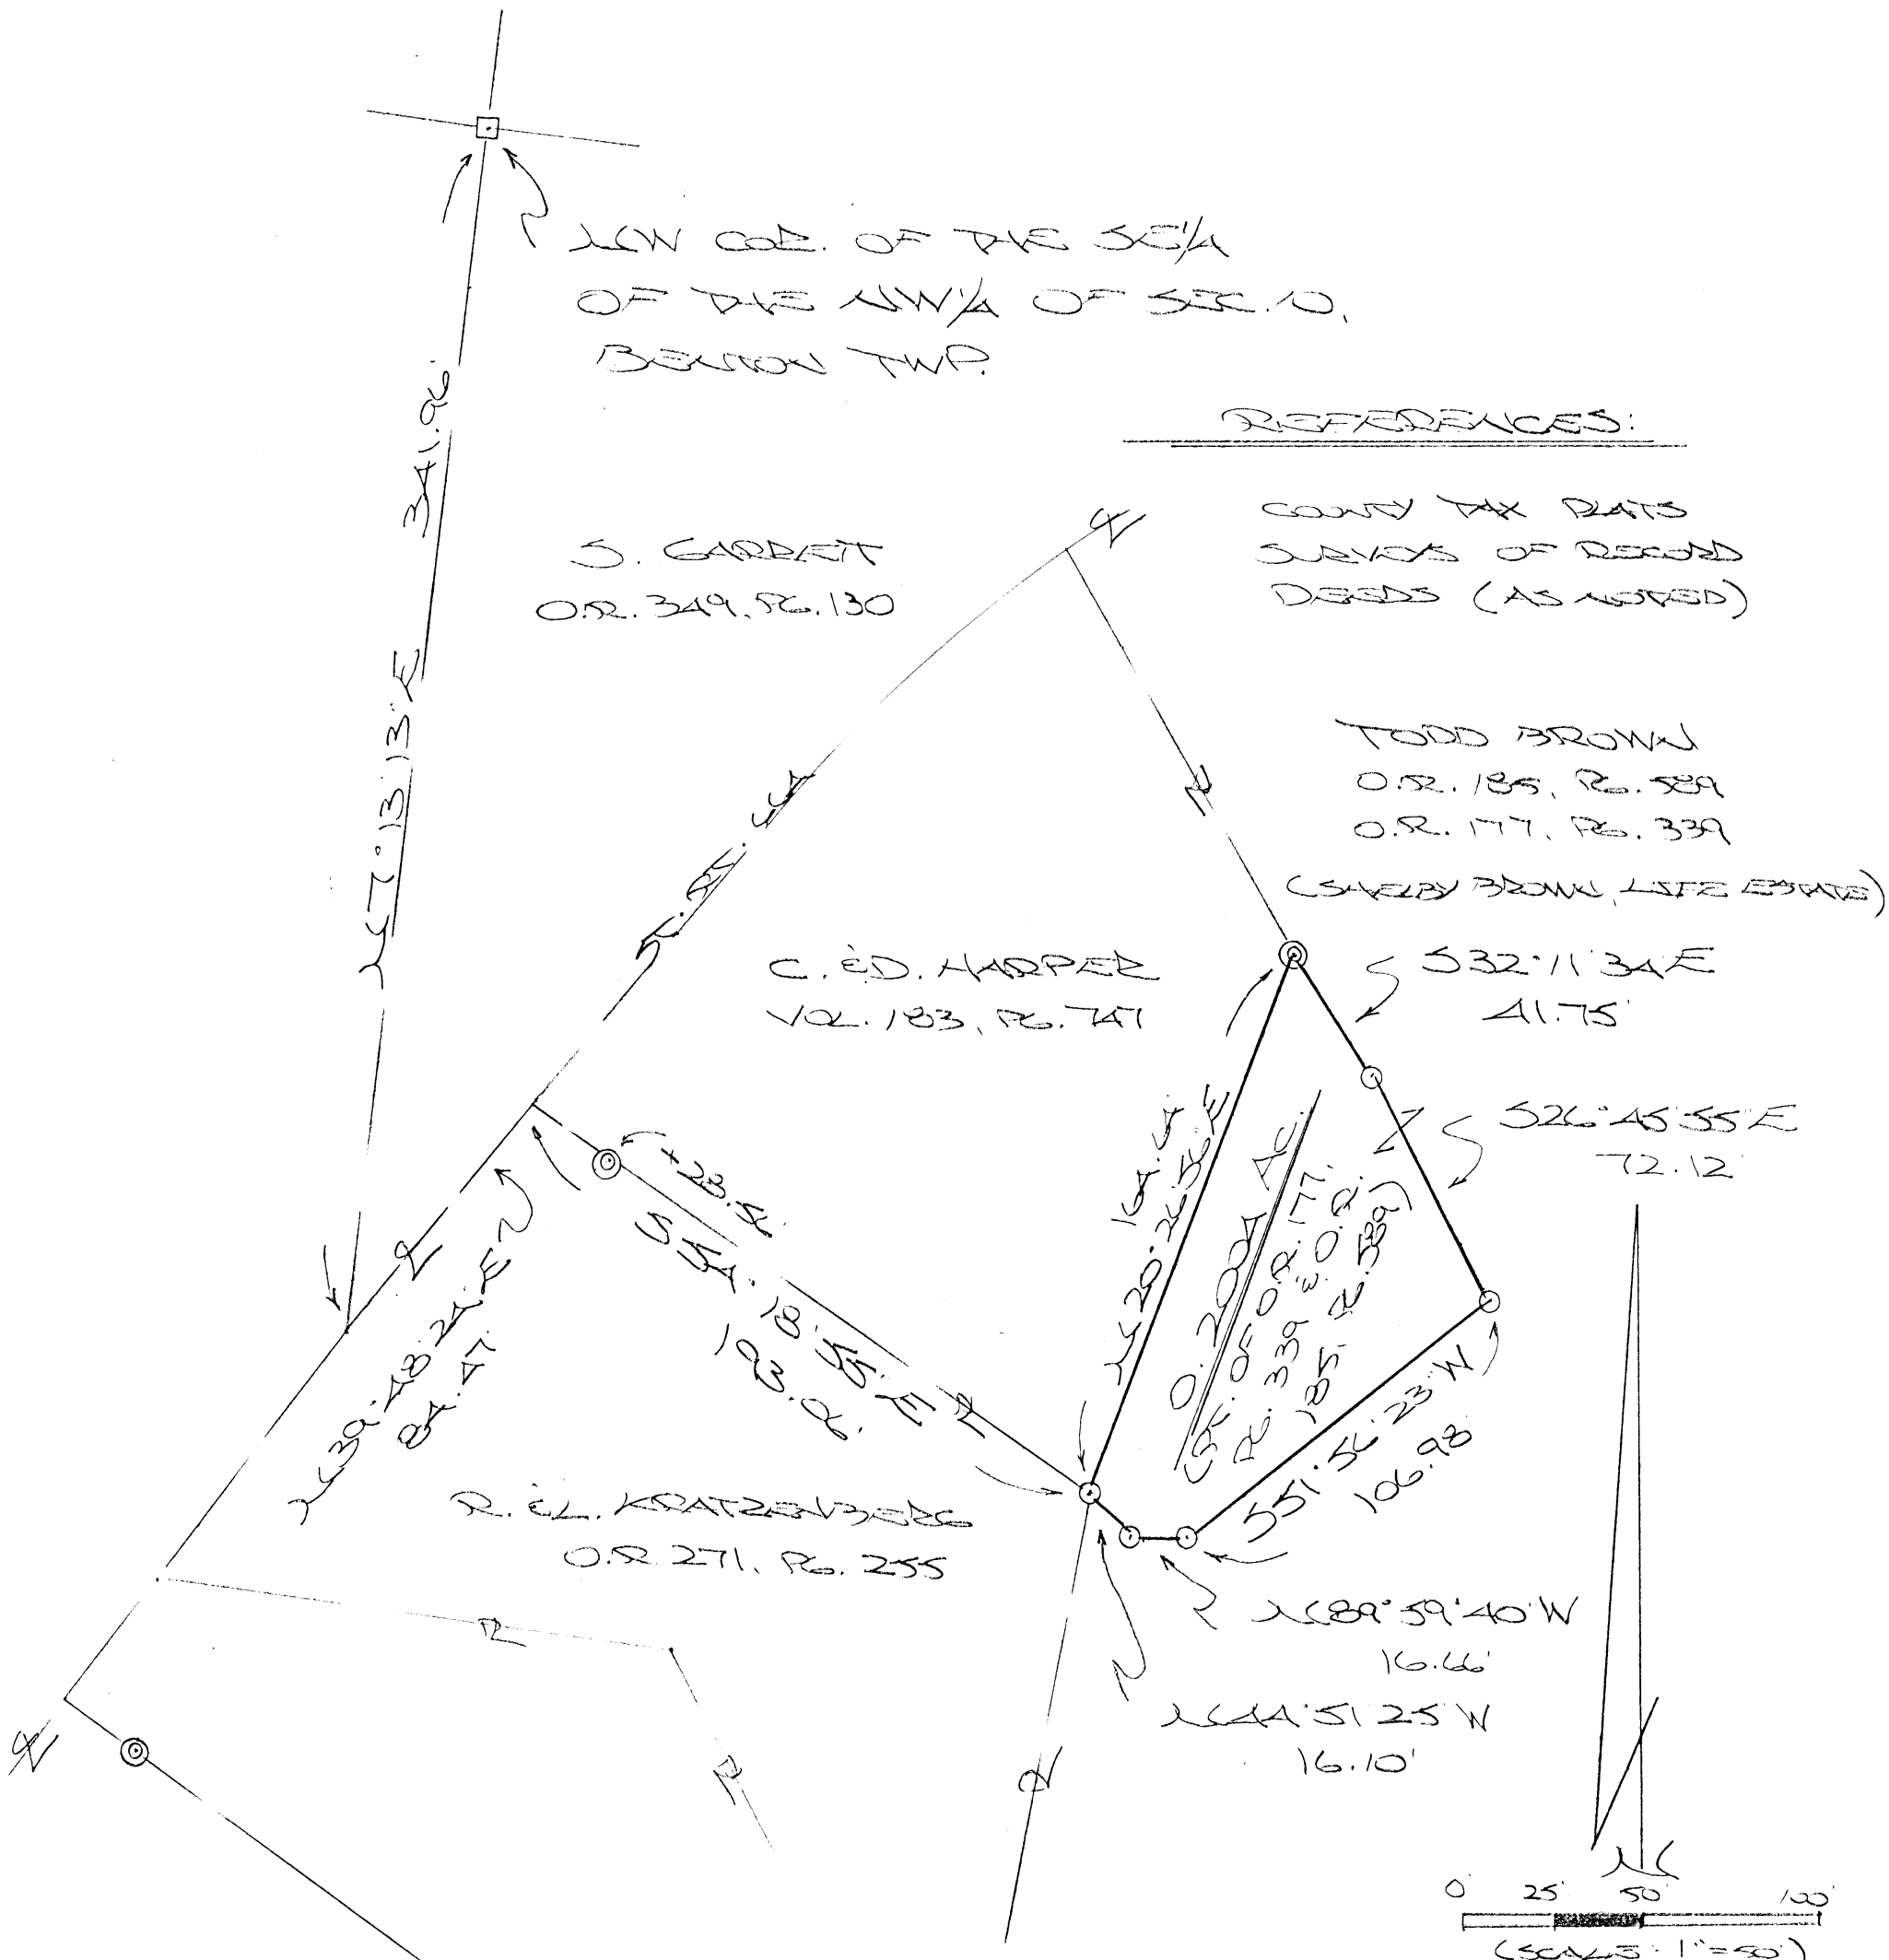 NW COR. OF THE SE1/4
OF THE NW1/4 OF SEC. 10,
BENTON TWP.
REFERENCES:
COUNTY TAX PLATS
SURVEYS OF RECORD
DEEDS (AS NOTED)
N 7° 13' 13" E 341.96'
S. GARRETT
O.R. 349, PG. 130
TODD BROWN
O.R. 185, PG. 589
O.R. 177, PG. 339
(SHELBY BROWN, LIFE ESTATE)
ST. RT. 664
C. & D. HARPER
VOL. 183, PG. 747
S 32° 11' 34" E
41.75'
S 26° 45' 55" E
72.12'
164.64'
N 20° 26' 56" E
0.2004 AC.
(PT. OF O.R. 177,
PG. 339 & O.R.
185, PG. 589)
S 54° 18' 55" E
N 39° 48' 24" E
84.47'
S 51° 56' 23" W
106.98'
R. & L. KRATZENBERG
O.R. 271, PG. 255
N 89° 59' 40" W
16.66'
N 44° 51' 25" W
16.10'
N
0' 25' 50' 100'
(SCALE: 1" = 50')